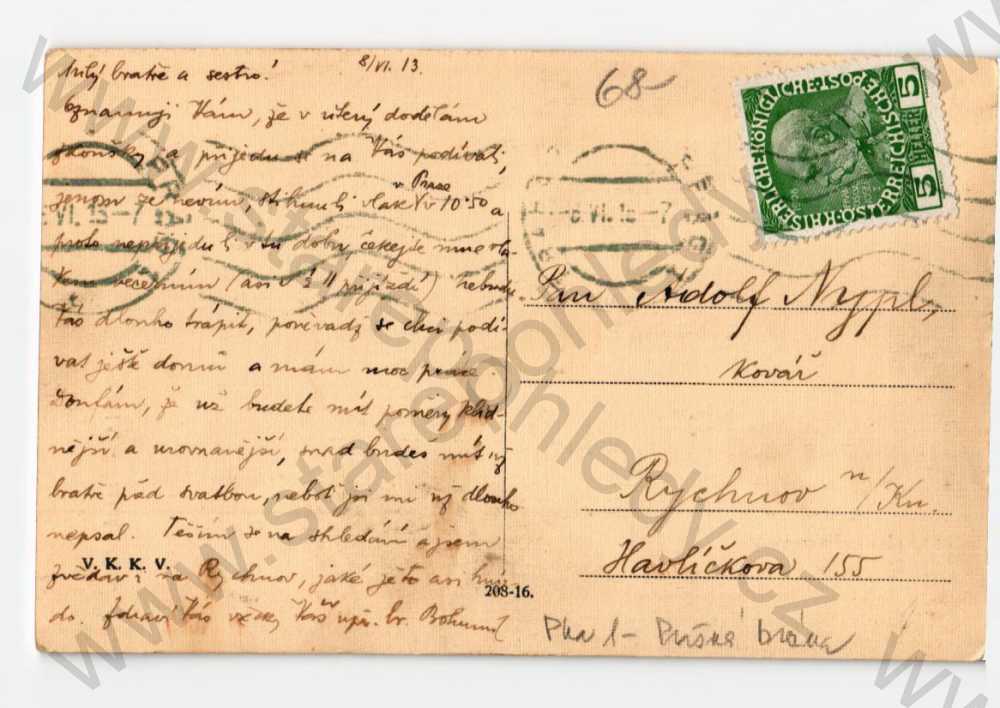 8/VI. 13.
Milý bratře a sestro!
Oznamuji Vám, že v úterý dodělám
zkoušky a přijedu se na Vás podívati,
jenom že nevím, stihnu-li vlak v Praze v 10·50 a
proto nepřijedu-li v tu dobu čekejte mne vla-
kem večerním (asi v ½ 11 přijíždí) Nebudu
Vás dlouho trápit, poněvadž se chci podí-
vat ještě domů a mám moc práce.
Doufám, že už budete mít poměry klid-
nější a urovnanější, snad budeš mít už
bratře před svatbou, neboť jsi mi už dlouho
nepsal. Těším se na shledání a jsem
zvědav i na Rychnov, jaké je to asi hníz-
do. Zdraví Vás vždy Váš upř. br. Bohumil
V. K. K. V.
208-16.
68-
KAISERLICHE KÖNIGLICHE POST
ÖSTERREICHISCHE
5 HELLER 5
VI. 13-7
8 VI. 13-7
Pan Adolf Nypl,
kovář
Rychnov n/Kn.
Havlíčkova 155
Pha 1 - Prašná brána
www.starepohledy.cz